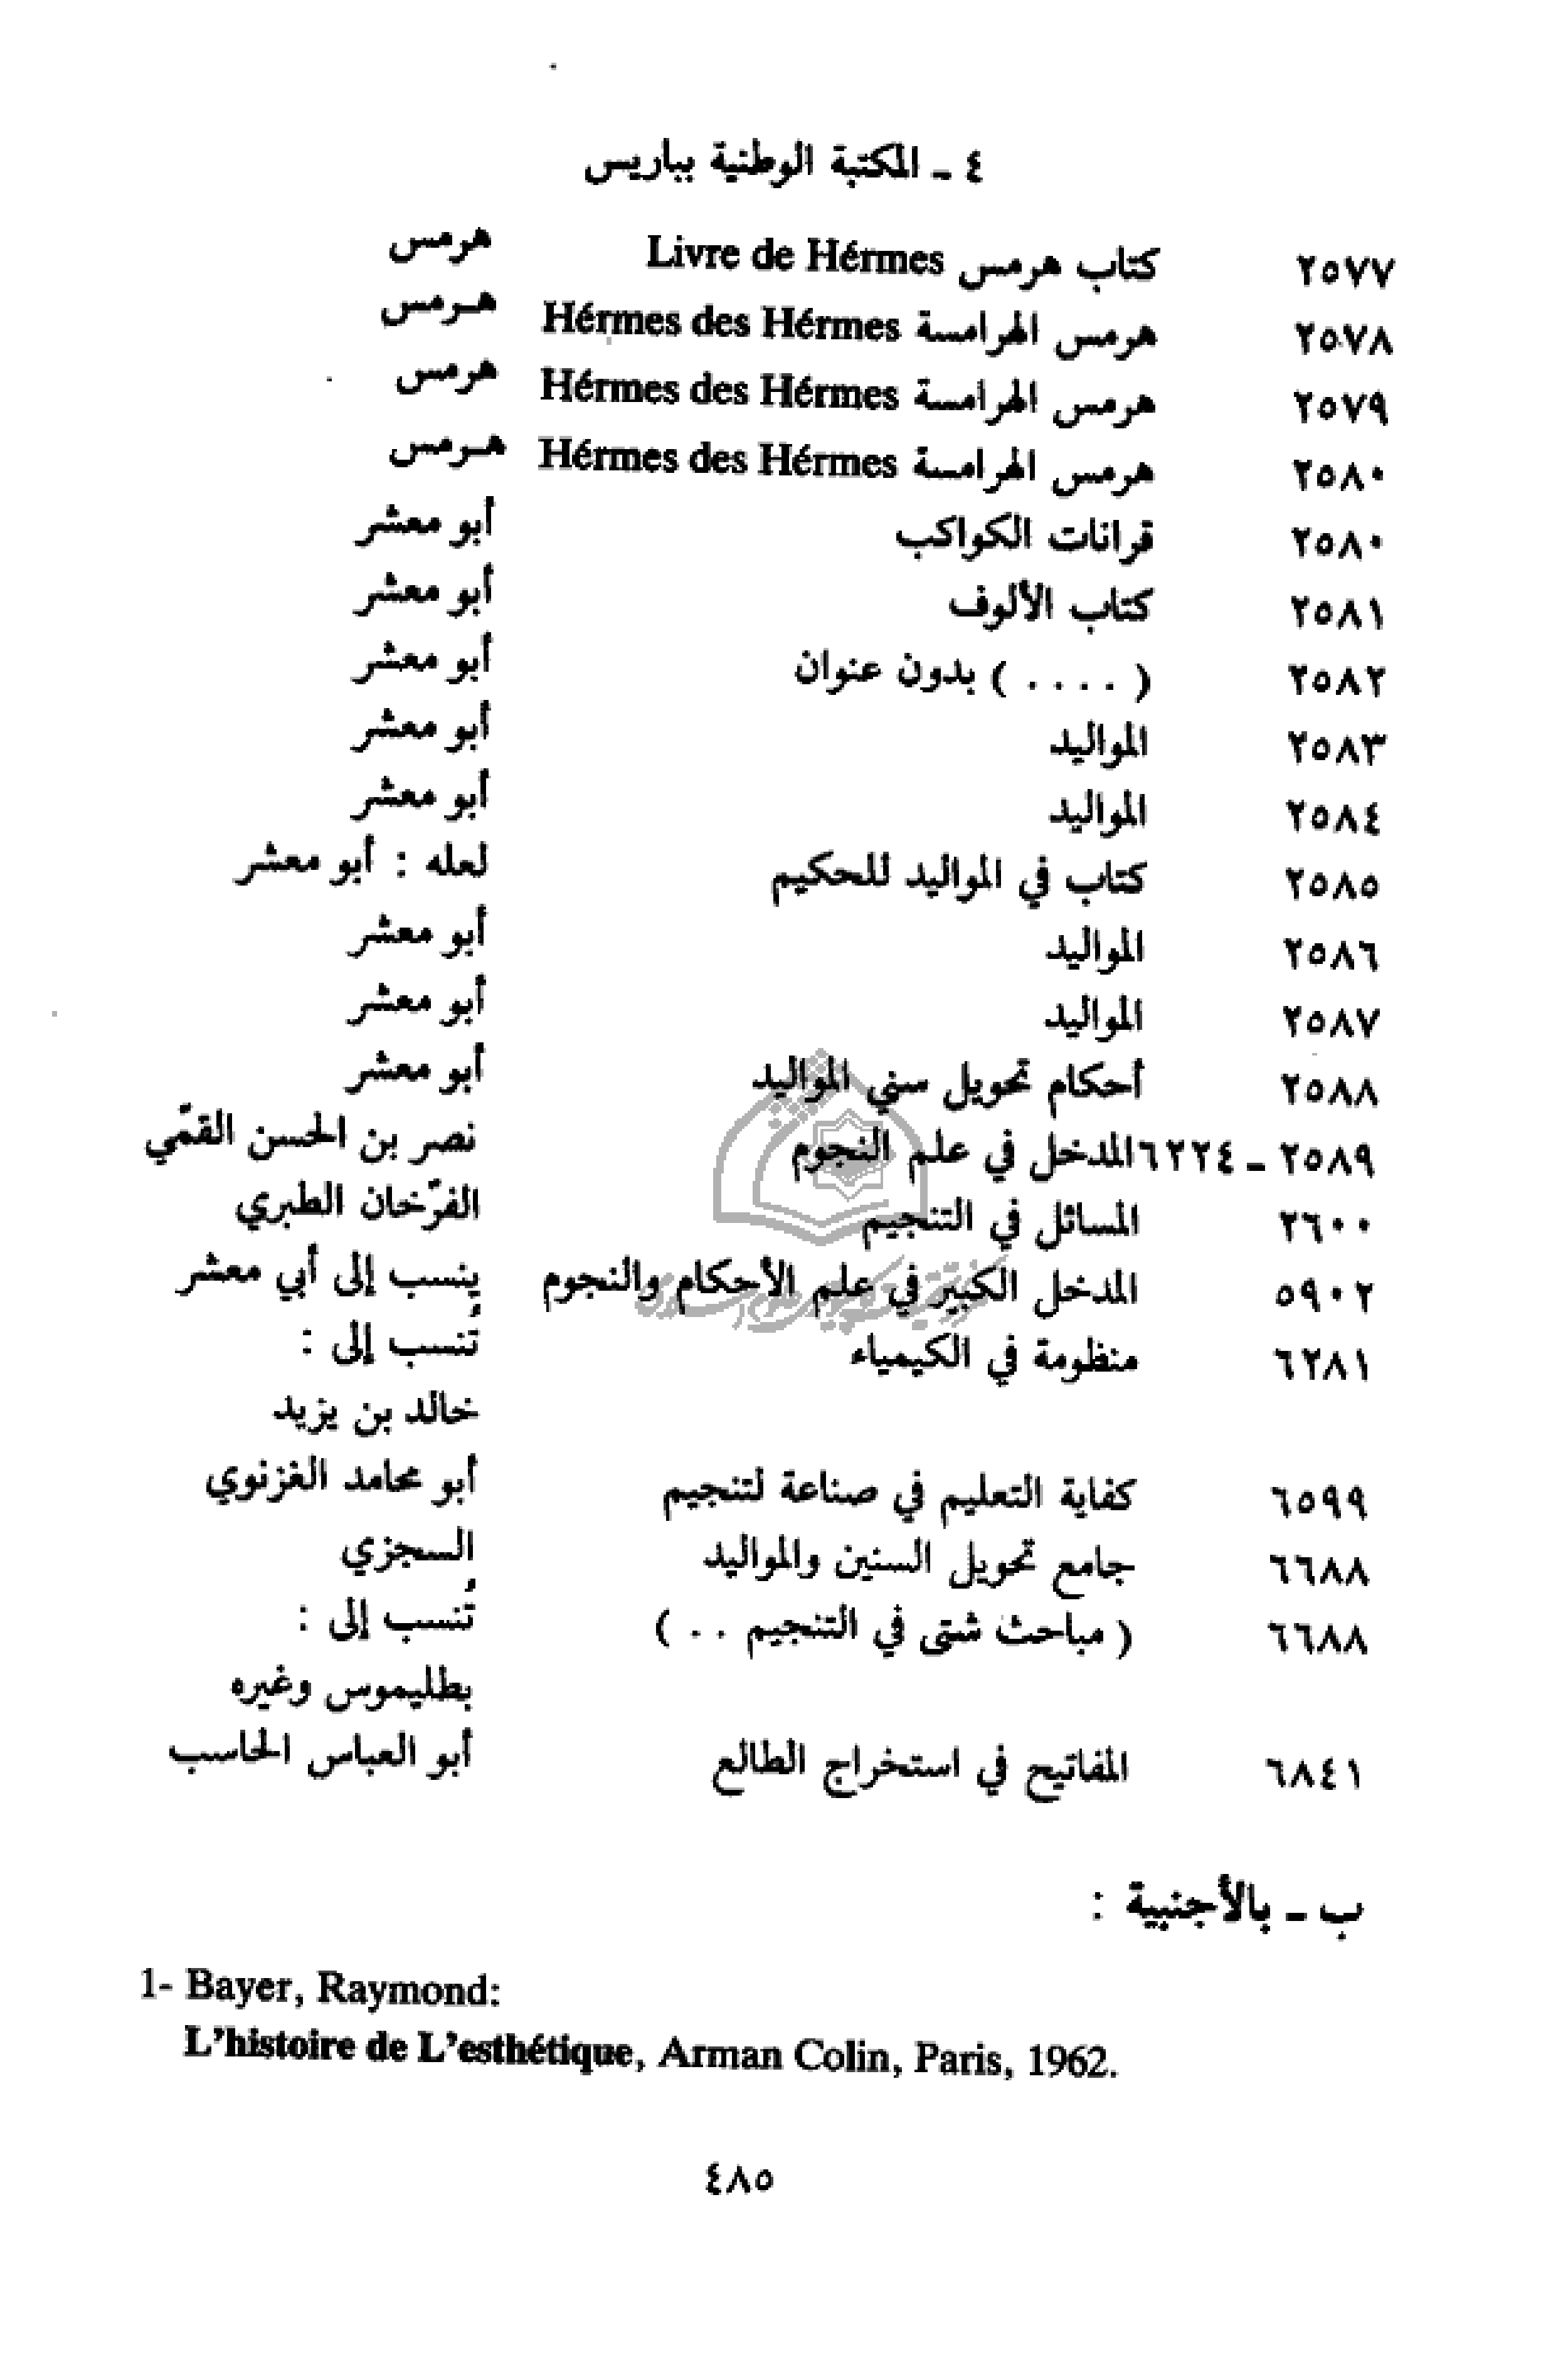 ٤ ـ المكتبة الوطنية بباريس
٢٥٧٧ كتاب هرمس Livre de Hérmes هرمس
٢٥٧٨ هرمس الهرامسة Hérmes des Hérmes هـرمس
٢٥٧٩ هرمس الهرامسة Hérmes des Hérmes هرمس
٢٥٨٠ هرمس الهرامسة Hérmes des Hérmes هـرمس
٢٥٨٠ قرانات الكواكب أبو معشر
٢٥٨١ كتاب الألوف أبو معشر
٢٥٨٢ ( . . . . ) بدون عنوان أبو معشر
٢٥٨٣ المواليد أبو معشر
٢٥٨٤ المواليد أبو معشر
٢٥٨٥ كتاب في المواليد للحكيم لعله : أبو معشر
٢٥٨٦ المواليد أبو معشر
٢٥٨٧ المواليد أبو معشر
٢٥٨٨ أحكام تحويل سني المواليد أبو معشر
٢٥٨٩ ـ ٦٢٢٤ المدخل في علم النجوم نصر بن الحسن القمّي
٢٦٠٠ المسائل في التنجيم الفرّخان الطبري
٥٩٠٢ المدخل الكبير في علم الأحكام والنجوم ينسب إلى أبي معشر
٦٢٨١ منظومة في الكيمياء تُنسب إلى :
خالد بن يزيد
٦٥٩٩ كفاية التعليم في صناعة لتنجيم أبو محامد الغزنوي
٦٦٨٨ جامع تحويل السنين والمواليد السجزي
٦٦٨٨ ( مباحث شتى في التنجيم . . ) تُنسب إلى :
بطليموس وغيره
٦٨٤١ المفاتيح في استخراج الطالع أبو العباس الحاسب
ب ـ بالأجنبية :
1- Bayer, Raymond:
L'histoire de L'esthétique, Arman Colin, Paris, 1962.
٤٨٥